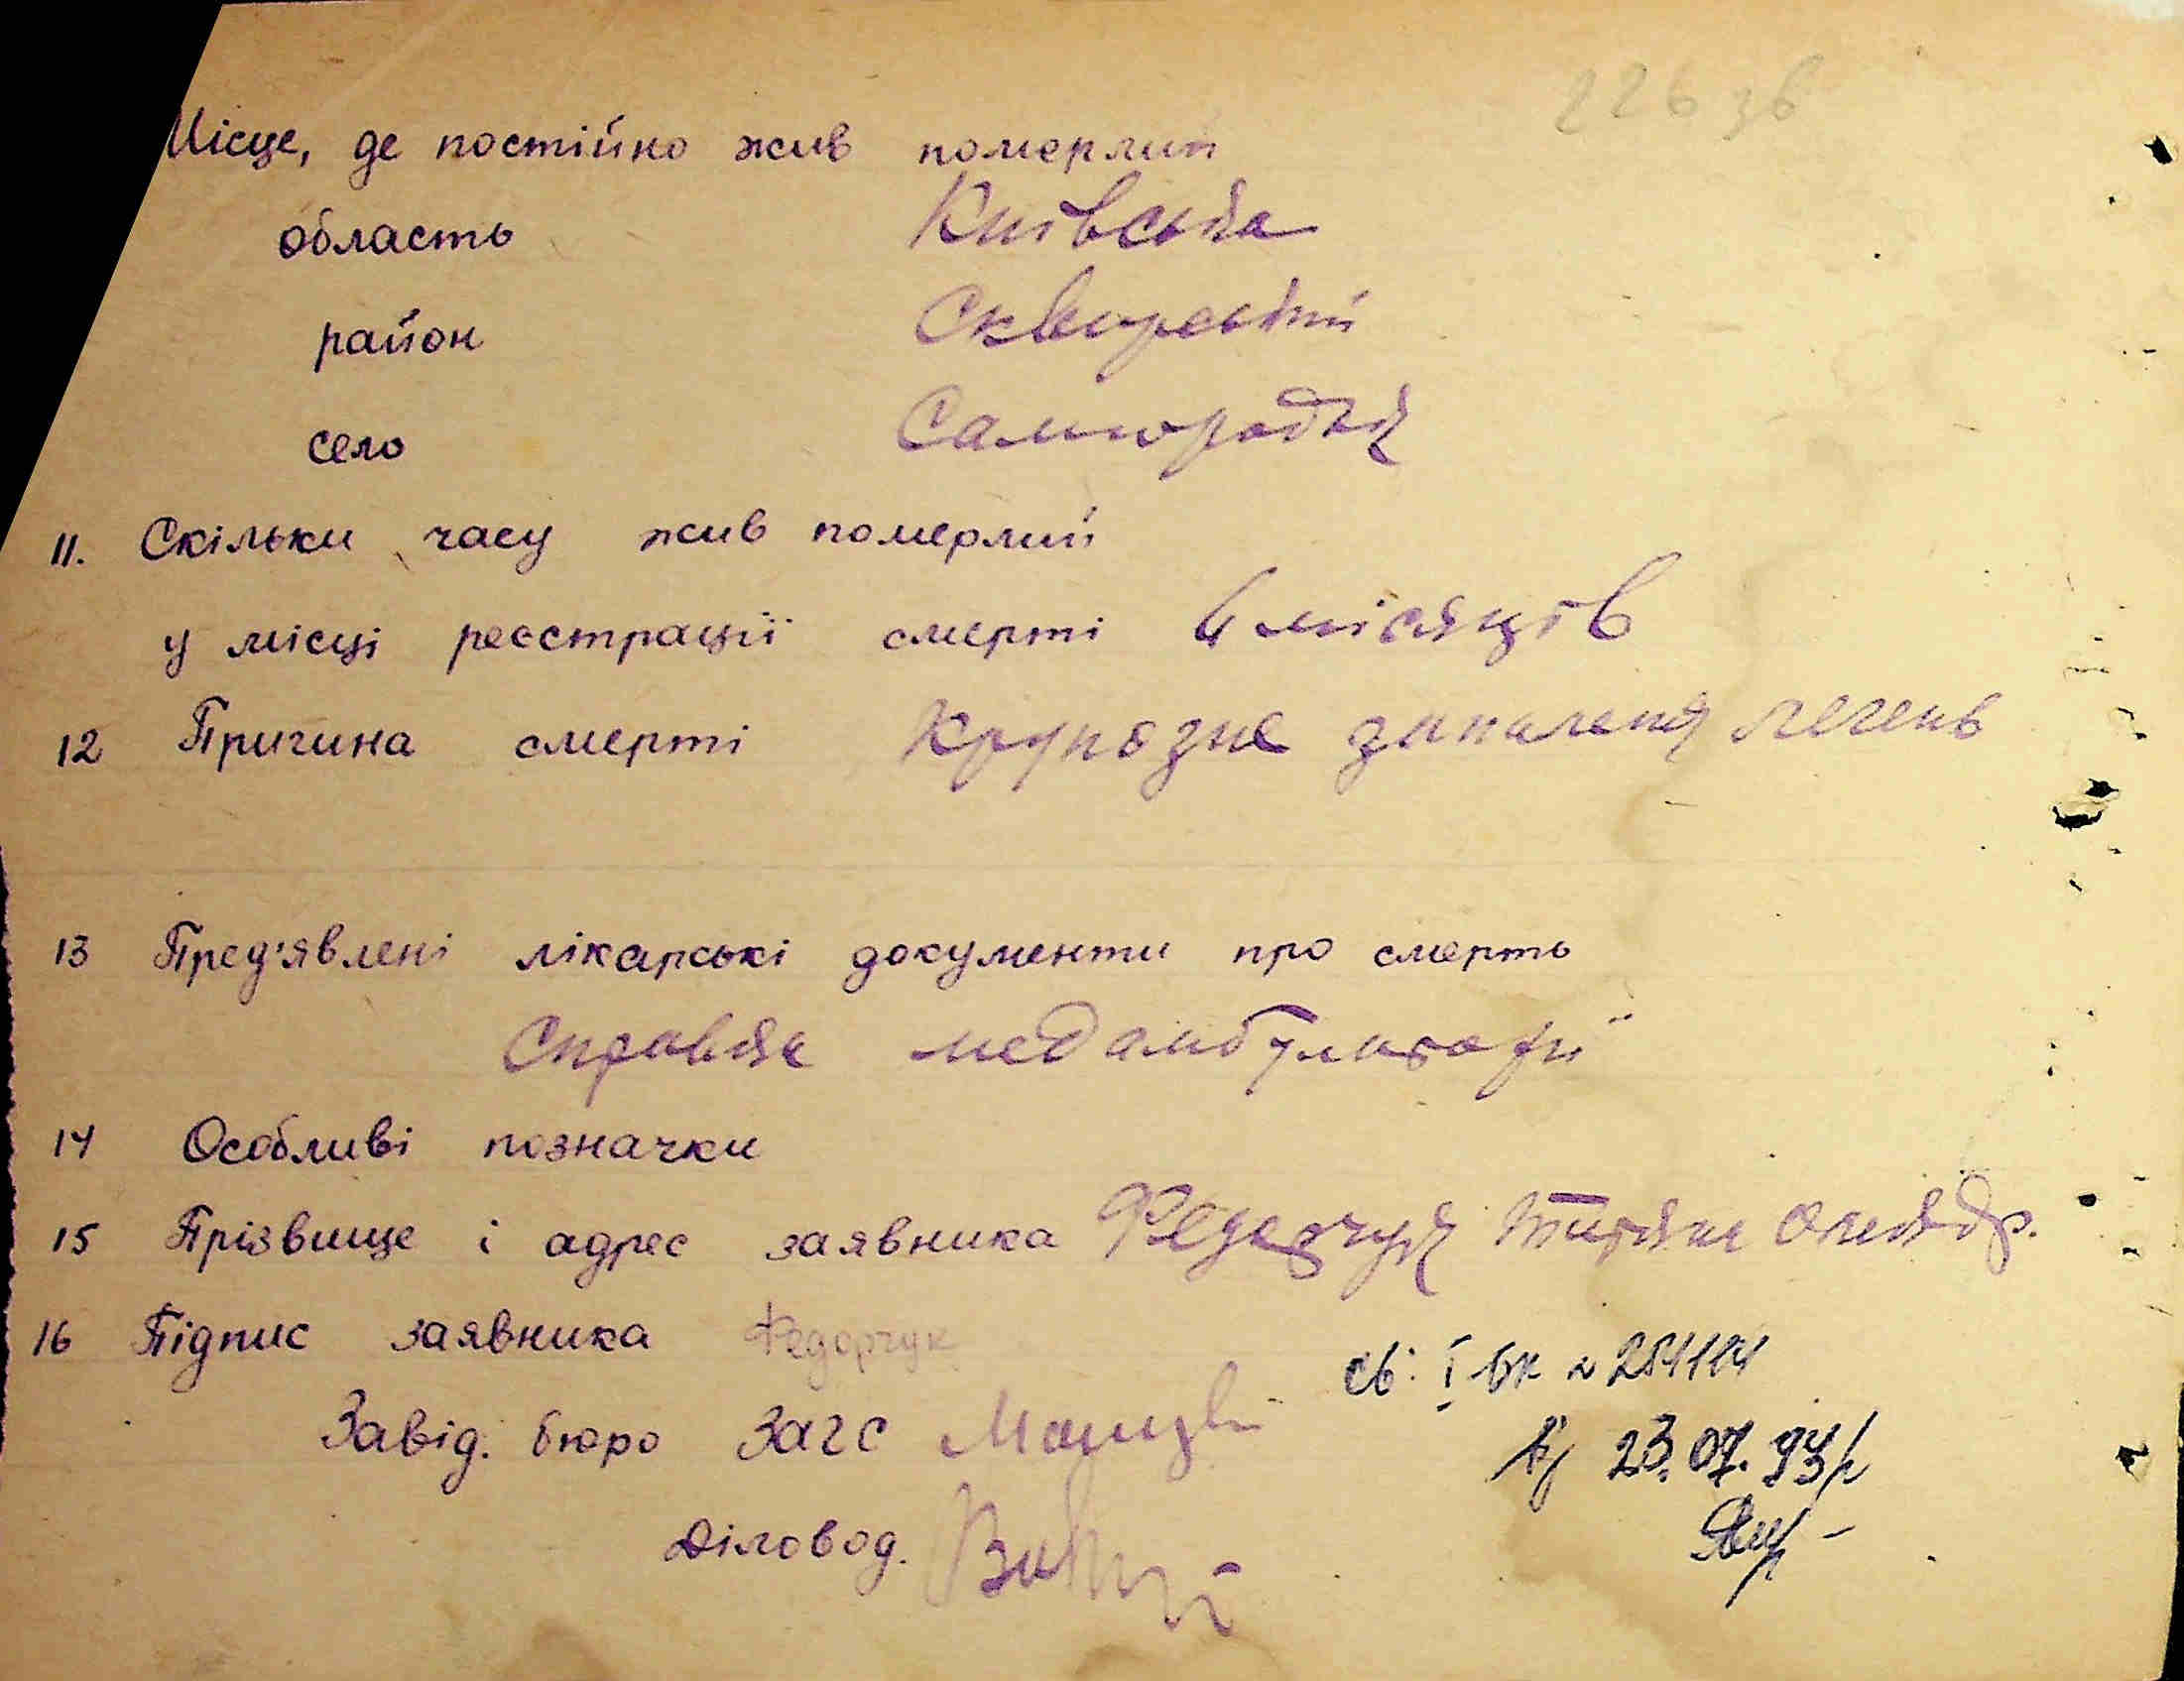 226 зв
Місце, де постійно жив померлий
область Київська
район Сквирський
село Самгородок
11. Скільки часу жив померлий
у місці реєстрації смерті 4 місяців
12 Причина смерті Крупозне запаленя легень
13 Пред'явлені лікарські документи про смерть
Справка медамбулаторії
14 Особливі позначки
15 Прізвище і адрес заявника Федорчук Титяна
16 Підпис заявника Федорчук
св: І бк № 254114
Завід. бюро Загс
від 23.07.93р
Діловод.